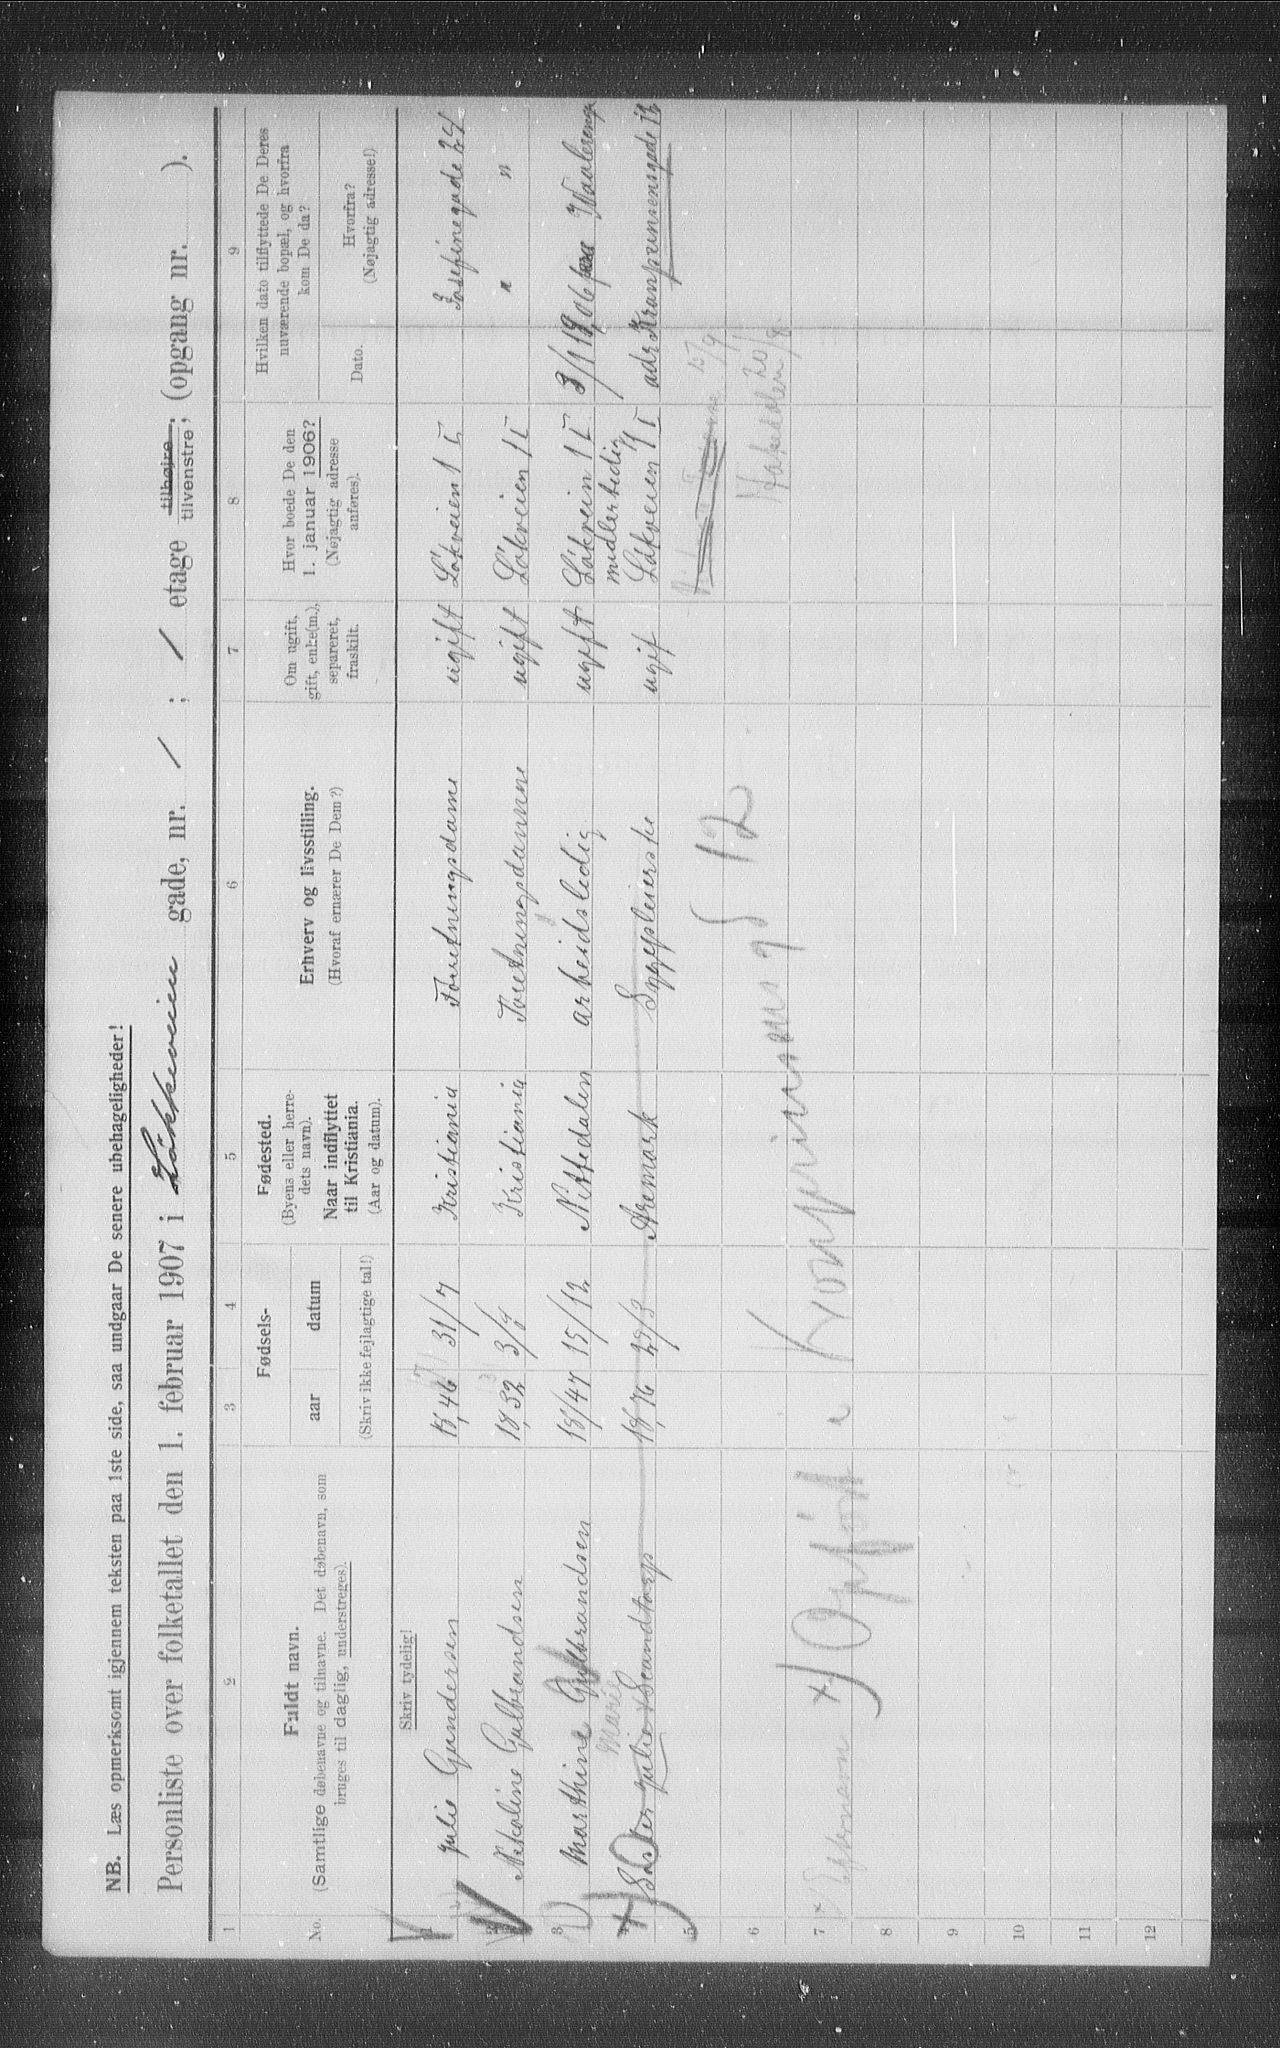 NB. Læs opmerksomt igjennem teksten paa 1ste side, saa undgaar De senere ubehageligheder!
Personliste over folketallet den 1. februar 1907 i Løkkeveien gade, nr. 1 ; 1 etage tilhøjre tilvenstre; (opgang nr. ).
1 2 3 4 5 6 7 8 9
No.
Fuldt navn.
(Samtlige døbenavne og tilnavne. Det døbenavn, som
bruges til daglig, understreges).
Fødsels-
aar datum
Fødested.
(Byens eller herre-
dets navn).
Naar indflyttet
til Kristiania.
(Aar og datum).
Erhverv og livsstilling.
(Hvoraf ernærer De Dem?)
Om ugift,
gift, enke(m.),
separeret,
fraskilt.
Hvor boede De den
1. januar 1906?
(Nøjagtig adresse
anføres).
Hvilken dato tilflyttede De Deres
nuværende bopæl, og hvorfra
kom De da?
Dato.
Hvorfra?
(Nøjagtig adresse!)
Skriv tydelig!
(Skriv ikke fejlagtige tal!)
1 Julie Gundersen 18,46 31/7 Kristiania Foretningsdame ugift Løkveien 1 I Josefinegade 24
2 Nikoline Gulbrandsen 18,32 3/9 Kristiania Foretningsdamme ugift Løkveien 1 I " "
3 Marthine Gulbrandsen 18/47 15/12 Nittedalen arbeidsledig ugift Løkvein 1 I 3/1 1906 Waalerenga
Marie
midlertidig
4 Søster Julie Scandtorp 18,76 29/3 Aremark Sygepleierske ugif Løkveien 1 I adr Kronprinsensgade 12
5
6 Hakedalen 20/8
7 +) Opført i Kronprinsensg 12
8
9
10
11
12